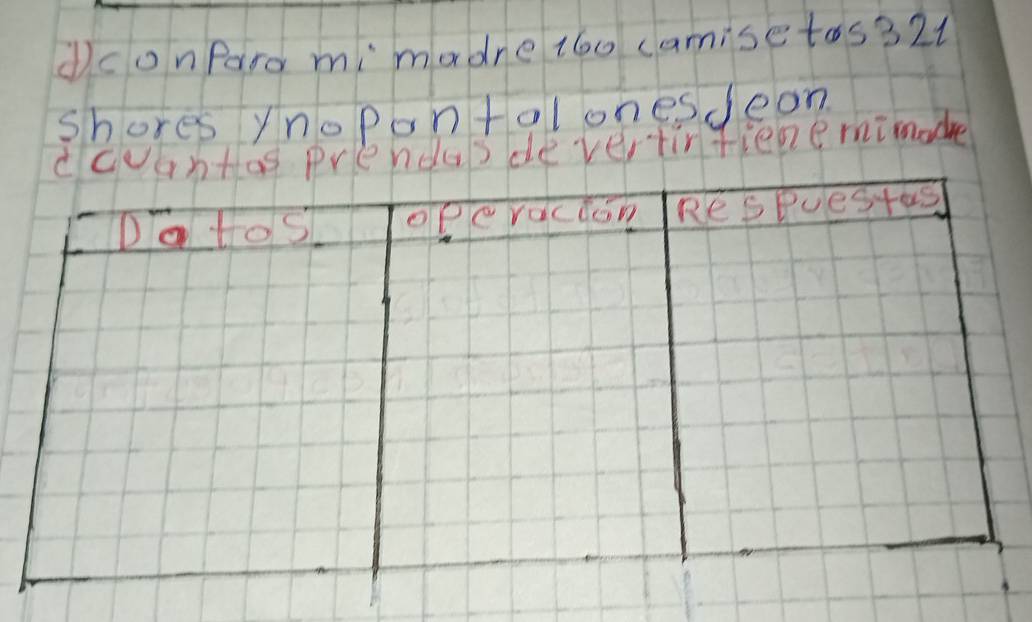 d) conparo mi madre 160 camisetas 321
shores y no pantalones jean
¿cuantas prendas de vertir tiene mi madre
Datos operación Respuestas